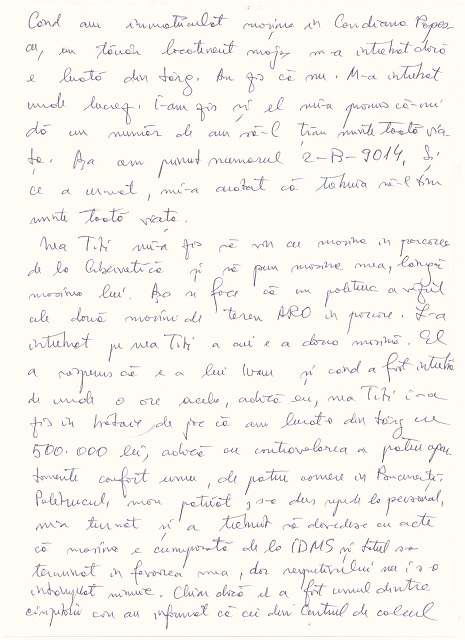 Cond am inmatriculat mașina in Condiano Popes-
cu, un tânăr locotenent major m-a intrebat dacă
e luată din târg. Am zis că nu. M-a intrebat
unde lucrez. I-am zis și el mi-a promis că-mi
dă un număr de am să-l țin minte toată via-
ța. Așa am primit numarul 2-B-9014. Și
ce a urmat, mi-a arătat că trebuia să-l țin
minte toată viața.
Nea Titi mi-a zis să vin cu mașina in parcarea
de la Cibernetică și să pun mașina mea, lângă
mașina lui. Așa se face că un politruc a văzut
cele două mașini de teren ARO in parcare. L-a
intrebat pe nea Titi a cui e a doua mașină. El
a răspuns că e a lui Ivan și cand a fost intrebat
de unde o are acela, adică eu, nea Titi i-a
zis in bătaie de joc că am luat-o din târg cu
500.000 lei, adică cu contravaloarea a patru apar-
tamente confort unu, de patru camere in București.
Politrucul, mon patriot, s-a dus repede la personal,
m-a turnat și a trebuit să dovedesc cu acte
că mașina e cumparată de la IDMS și totul s-a
terminat in favoarea mea, dar respectivului nu i s-a
intamplat nimic. Chiar dacă el a fost unul dintre
care au informat că cei din Centrul de calcul